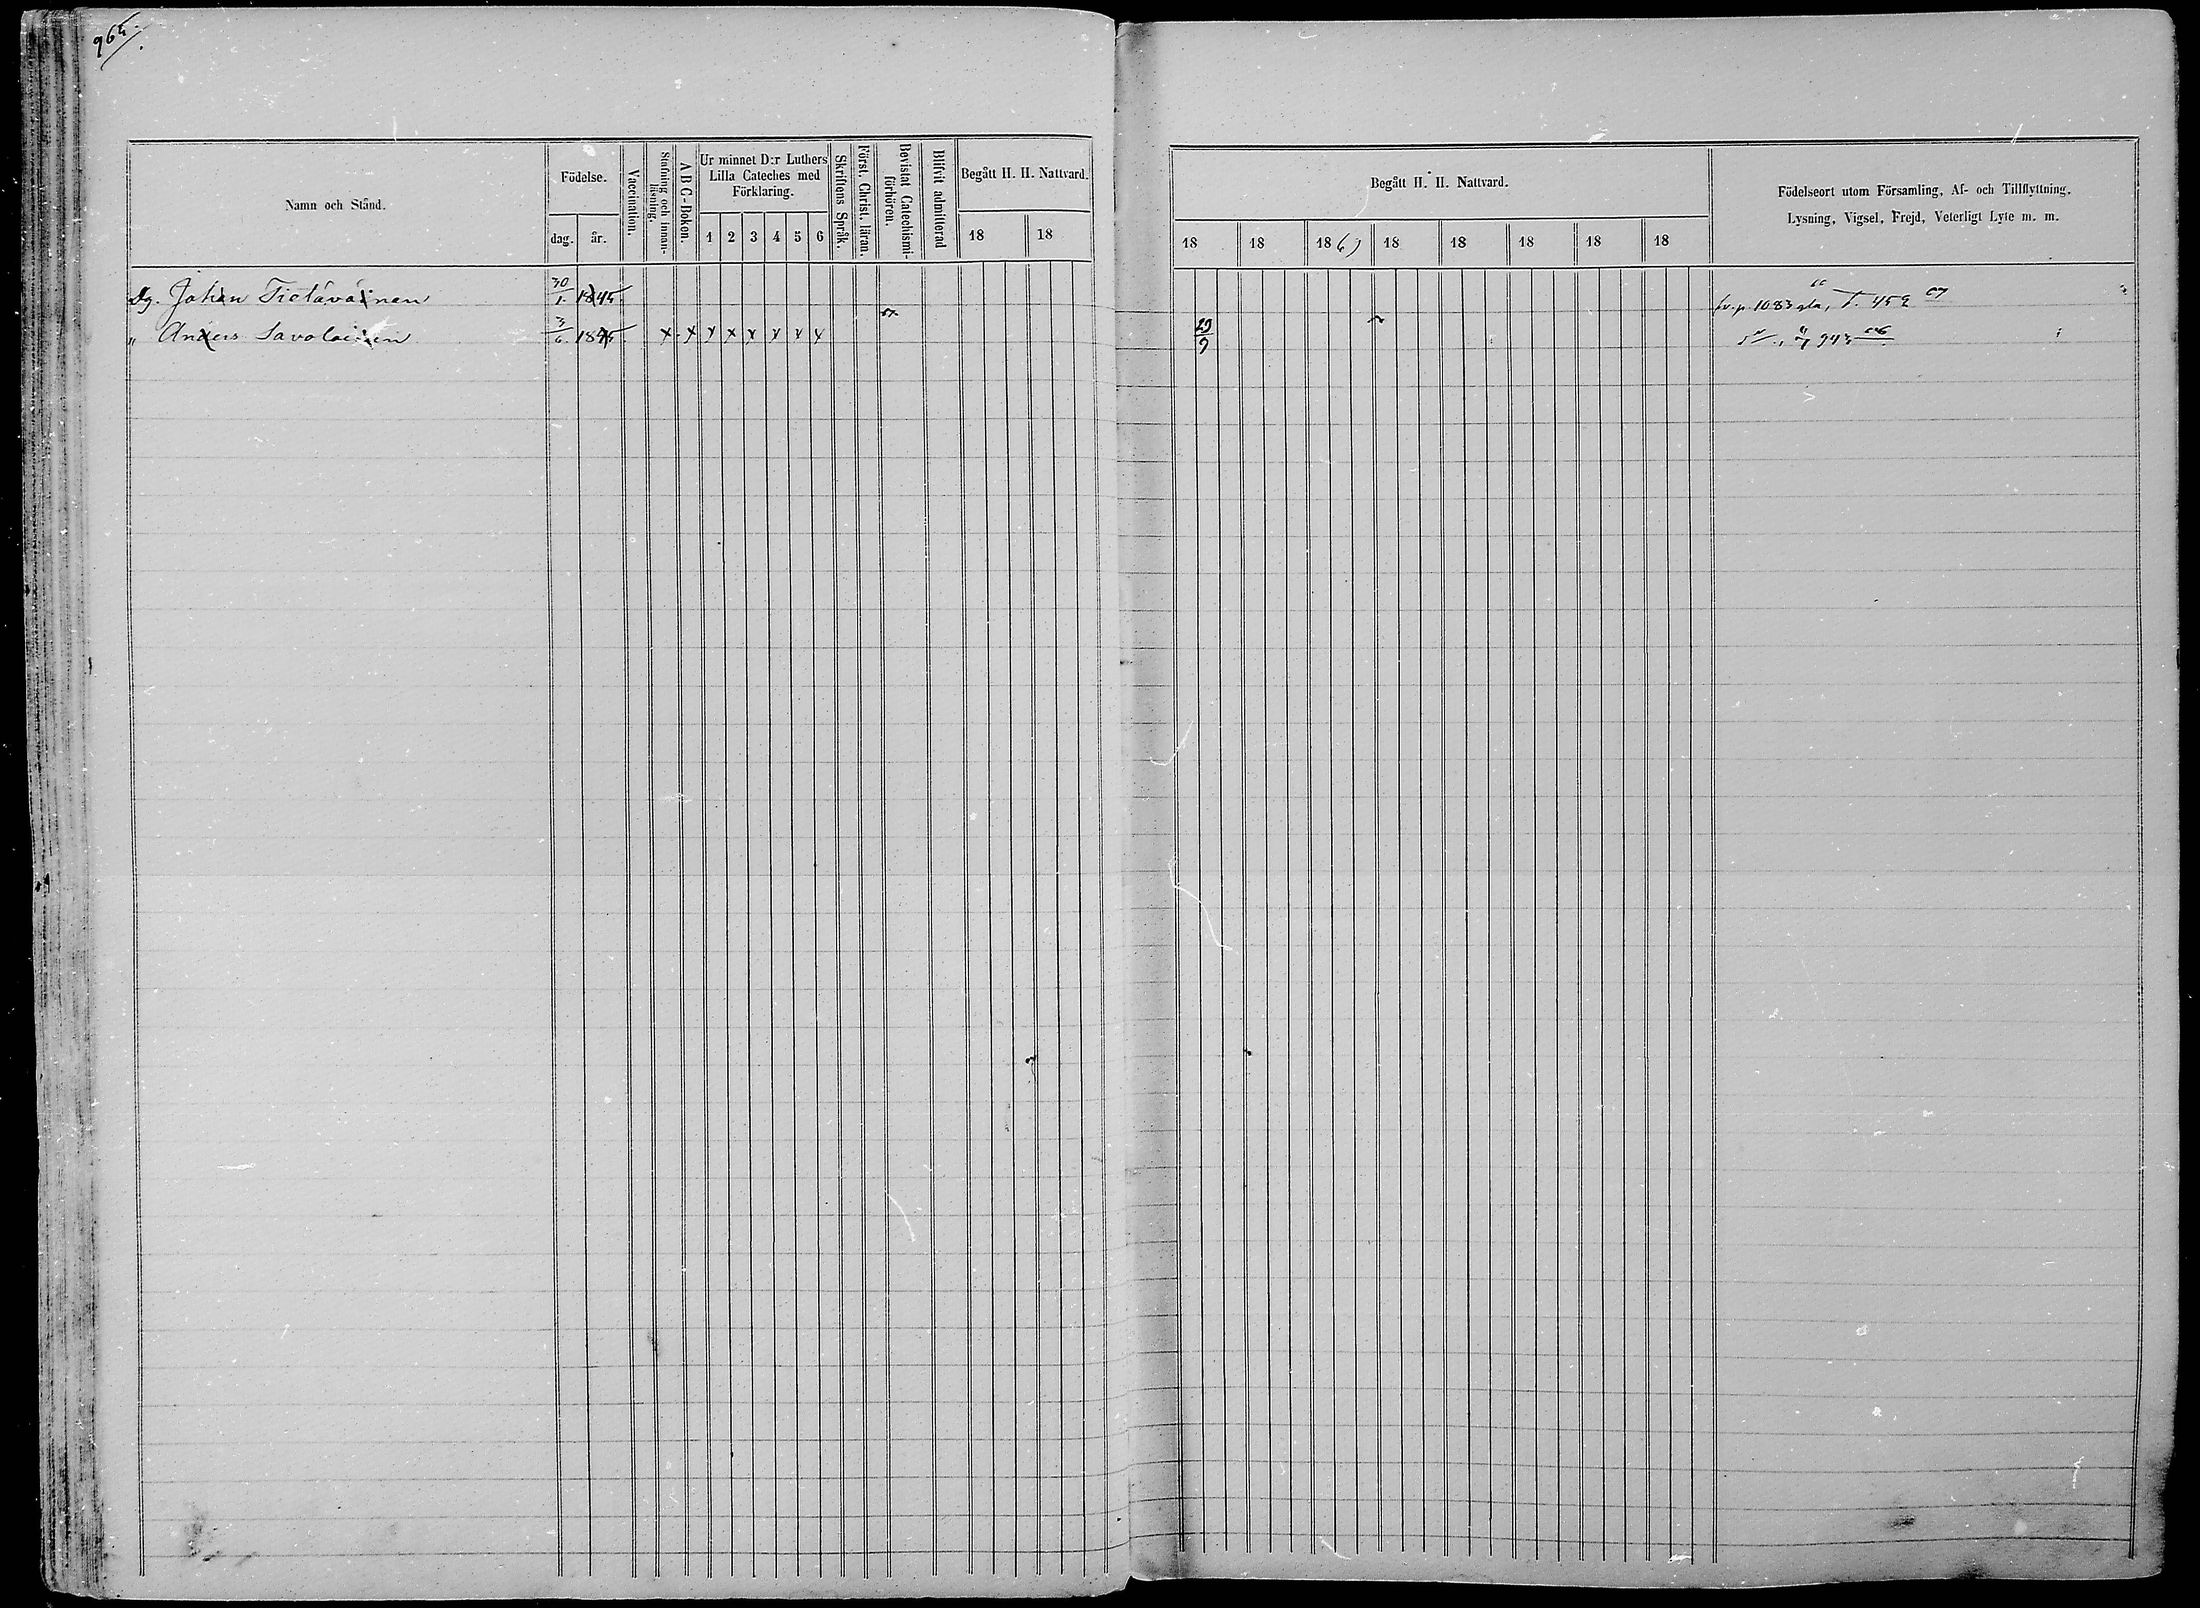 965.
Namn och Stånd.
Födelse.
dag. år.
Vaccination.
Stafning och innan-läsning.
A B C-Boken.
Ur minnet D:r Luthers
Lilla Cateches med
Förklaring.
1 2 3 4 5 6
Skriftens Språk.
Först. Christ. läran.
Bevistat Catechismi-förhören.
Blifvit admitterad
Begått H. H. Nattvard.
18 18
Begått H. H. Nattvard.
18 18 1867 18 18 18 18 18
Födelseort utom Församling, Af- och Tillflyttning,
Lysning, Vigsel, Frejd, Veterligt Lyte m. m.
Dg. Johan Tietäväinen 30/1. 1845. fr. p. 1083 T. 459 67
" Anders Savolainen 3/6. 1845. x x x x x x x x 29/9 943